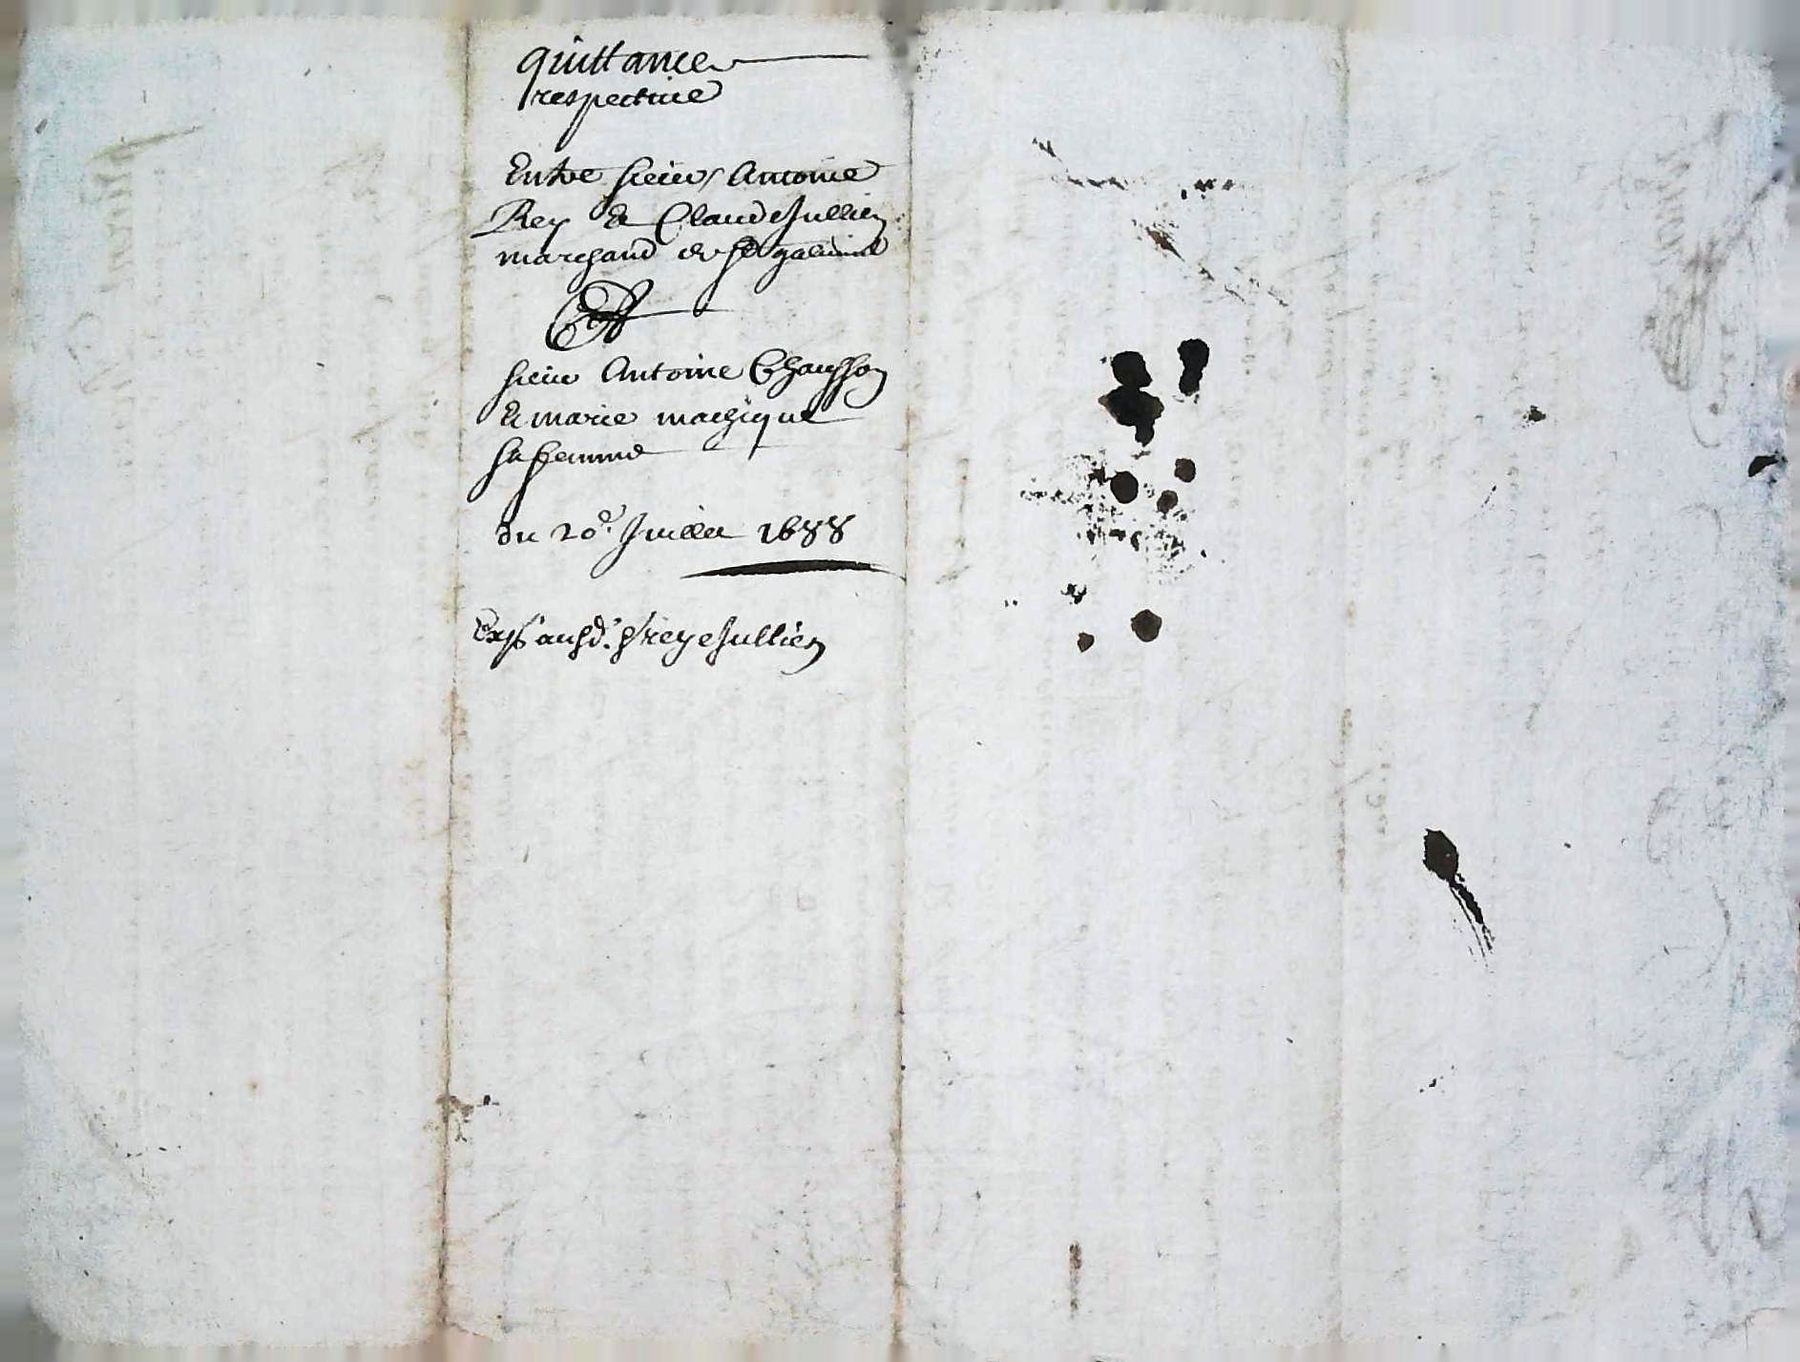 quittance
respective
Entre sieur Antoine
Rey & Claude Jullien
marchand de St galmier
Et
sieur Antoine Chausson
& marie
sa femme
du 20e. Juillet 1688
Jullien